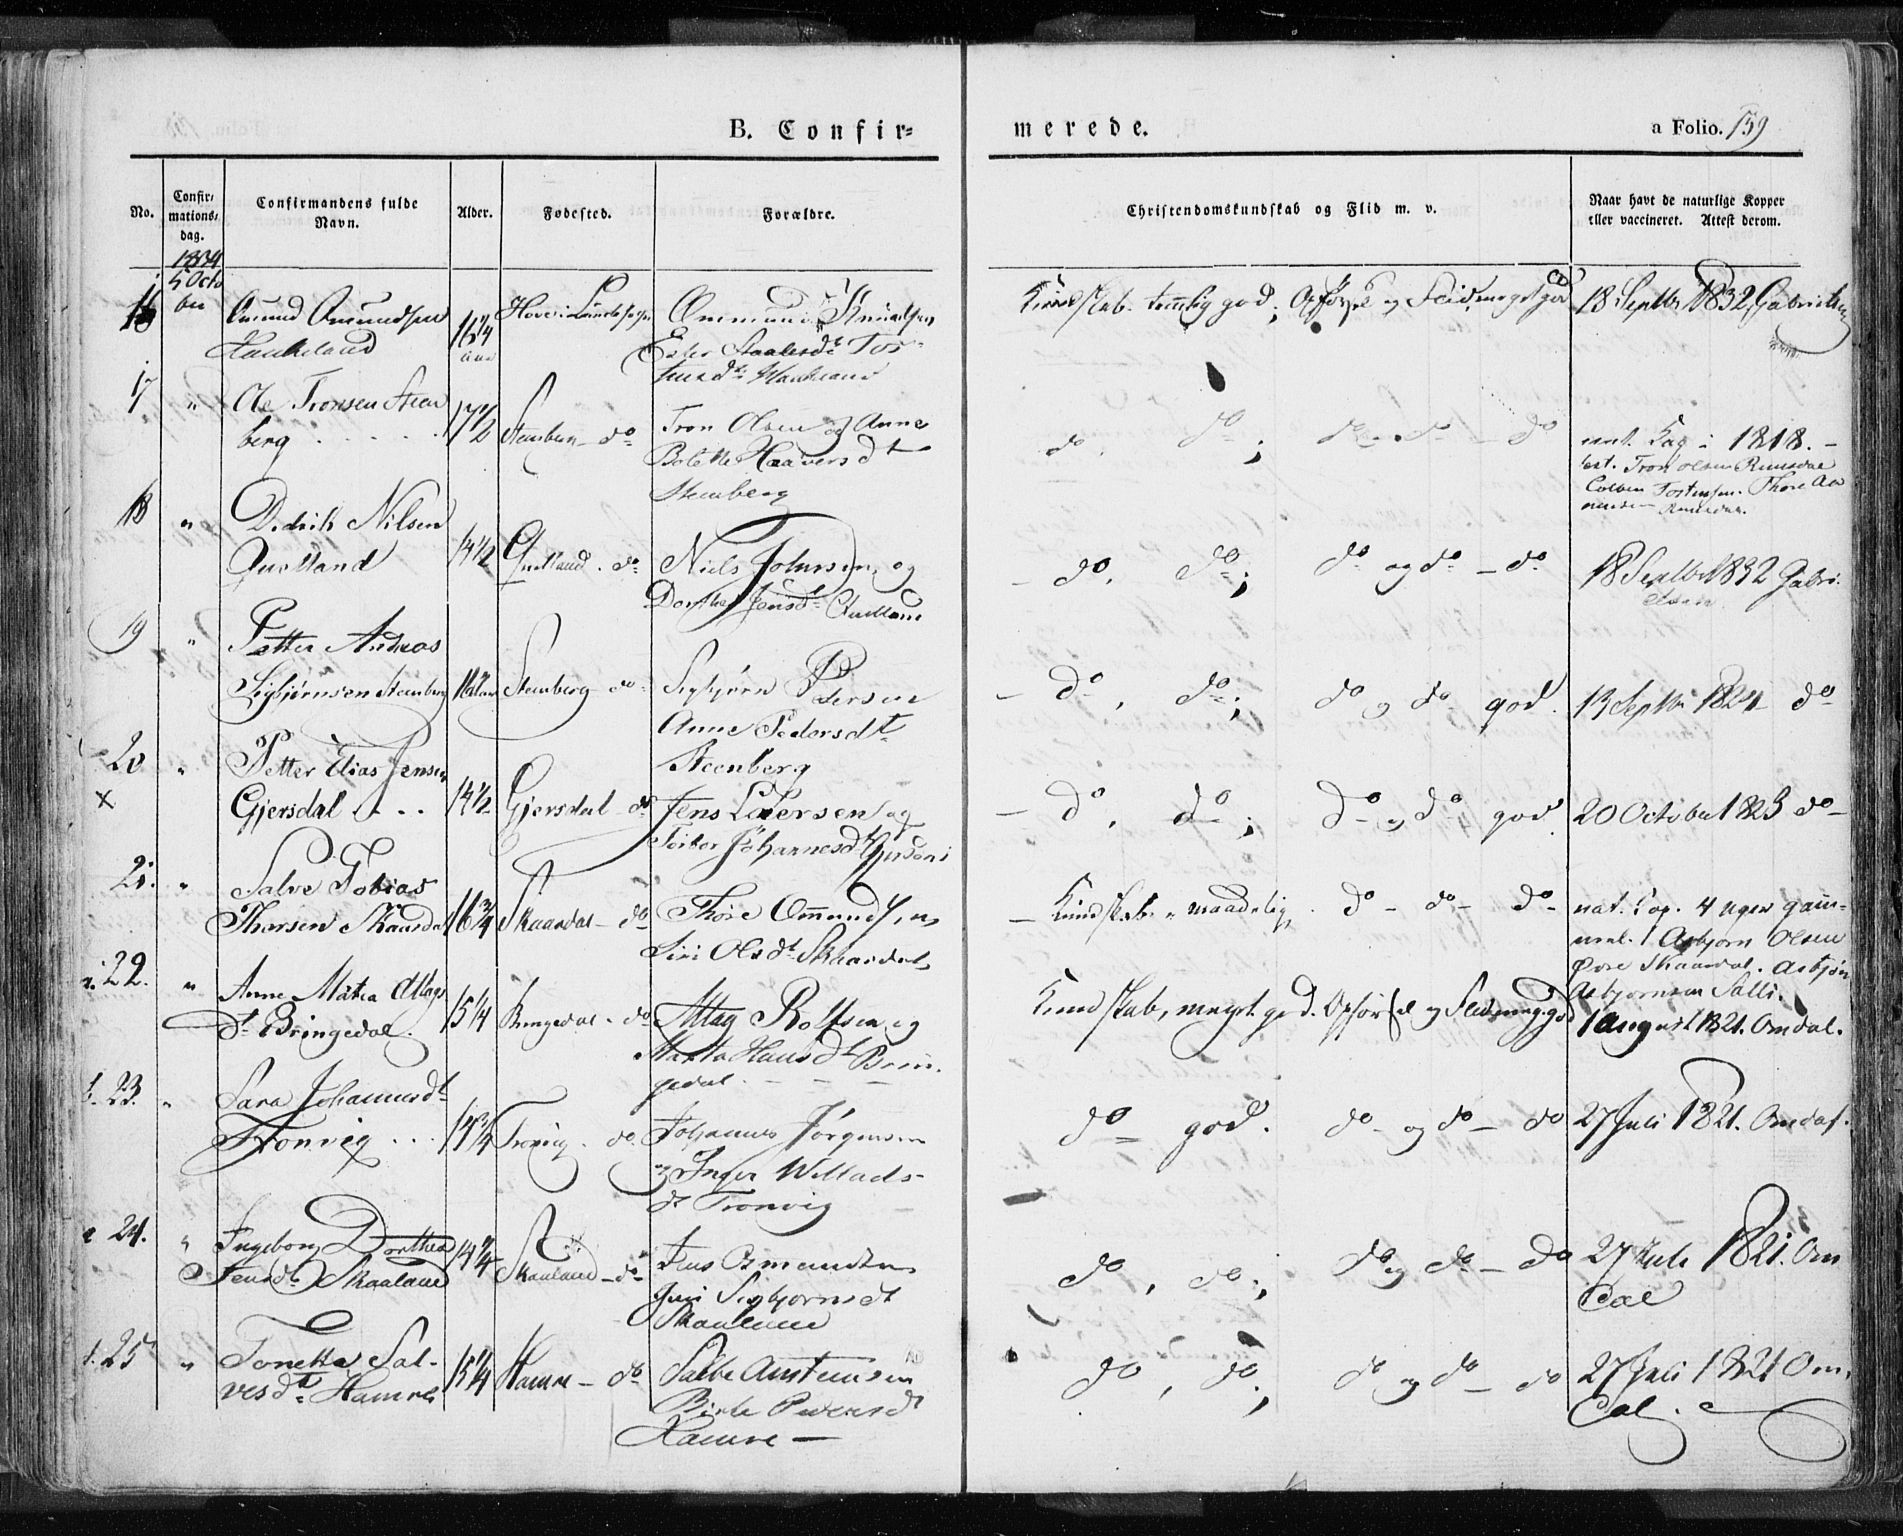 B. Confir=
merede.
a Folio. 159
No.
Confir=
mations=
dag.
Confirmandens fulde
Navn.
Alder.
Fødested.
Forældre.
Christendomskundskab og Flid m. v.
Naar havt de naturlige Kopper
eller vaccineret. Attest derom.
1834
5 Octo
ber
16
Amund Omundsen
Haukeland
16 1/4
Hove i Lunds Sogn
Ommund Knudsen
Kundskab temmelig god; Opførsel og Flid meget god
18 Septbr 1832 Gabrielsen
17
"
Ole Tronsen Steen
berg
17 1/2
Steenberg do
Tron Olsen og Anne
Bolette Haaversdt
Steenberg
do do; do do do
nat. Kop i 1818.
Tron Olsen Ruusdal
18
"
Didrik Nilsen
Quelland
14 1/2
Quelland do
Niels Johnsen og
Dorthe Jensdt Quelland
do, do; do og do - do
18 Septbr 1832 Gabri-
elsen
19
"
Petter Andreas
Sigbjørnsen Steenberg
Steenberg do
Sigbjørn Pedersen
Anne Pedersdt
Steenberg
do, do; do og do god.
13 Septbr 1824 do
20
"
x
Petter Elias Jensen
Gjersdal
14 1/2
Gjersdal do
Jens Larsen og
Johannesdt
do, do; do og do god
20 October 1823 do
21.
"
Salve Tobias
Thorsen Skaardal
16 3/4
Skaardal do
Thore Ommundsen
Siri Olsdt Skaardal
Kundskab maadelig. do - do - do
nat. Kop. 4 uger gam-
mel. Asbjørn Olsen
Øvre Skaardal. Asbjørn
Asbjørnsen Salli.
22.
"
Anne Matea Attags
dt Bringedal.
15 1/4
Bringedal do
Attag Rolfsen og
Marta Hansdt Brin-
gedal.
Kundskab, meget god. Opførsel og Flid meg. god
1 August 1821. Omdal.
23.
"
Sara Johannesdt
Tronvig
14 3/4
Tronvig do
Johannes Jørgensen
og Inger Willads-
dt Tronvig
do god. do og do - do
27 Juli 1821. Omdal.
24.
"
Ingeborg Dorthea
Jensdt Skaaland
14 1/4
Skaaland do
Jens Omundsen
Guri Sigbjørnsdt
Skaaland
do, do; do og do - do
27 Juli 1821. Om
dal
25
"
Tonette Sal-
vesdt Hamre
15 1/4
Hamre do
Salve Austensen
Birte Pedersdt
Hamre
do, do; do og do - do
27 Juli 1821 Om.
dal.